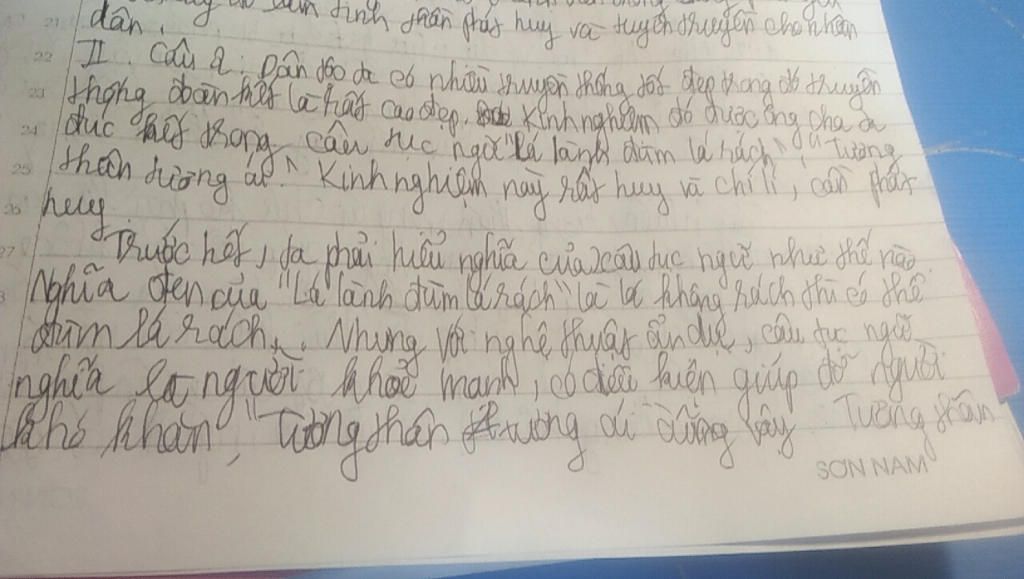 dân.
tinh thần phát huy và tuyên truyền cho nhân
22 II. Câu 2: Dân tộc ta có nhiều truyền thống tốt đẹp trong đó truyền
23 thống đoàn kết là rất cao đẹp. Kinh nghiệm đó được ông cha ta
24 đúc kết trong câu tục ngữ "Lá lành đùm lá rách", "Tương
25 thân tương ái". Kinh nghiệm này rất hay và chí lí, cần phát
26 huy
27 Trước hết, ta phải hiểu nghĩa của 2 câu tục ngữ như thế nào.
Nghĩa đen của "Lá lành đùm lá rách" là lá không rách thì có thể
đùm lá rách. Nhưng với nghệ thuật ẩn dụ, câu tục ngữ
nghĩa là người khoẻ mạnh, có điều kiện giúp đỡ người
khó khăn, "Tương thân tương ái" cũng vậy. Tương thân
SON NAM